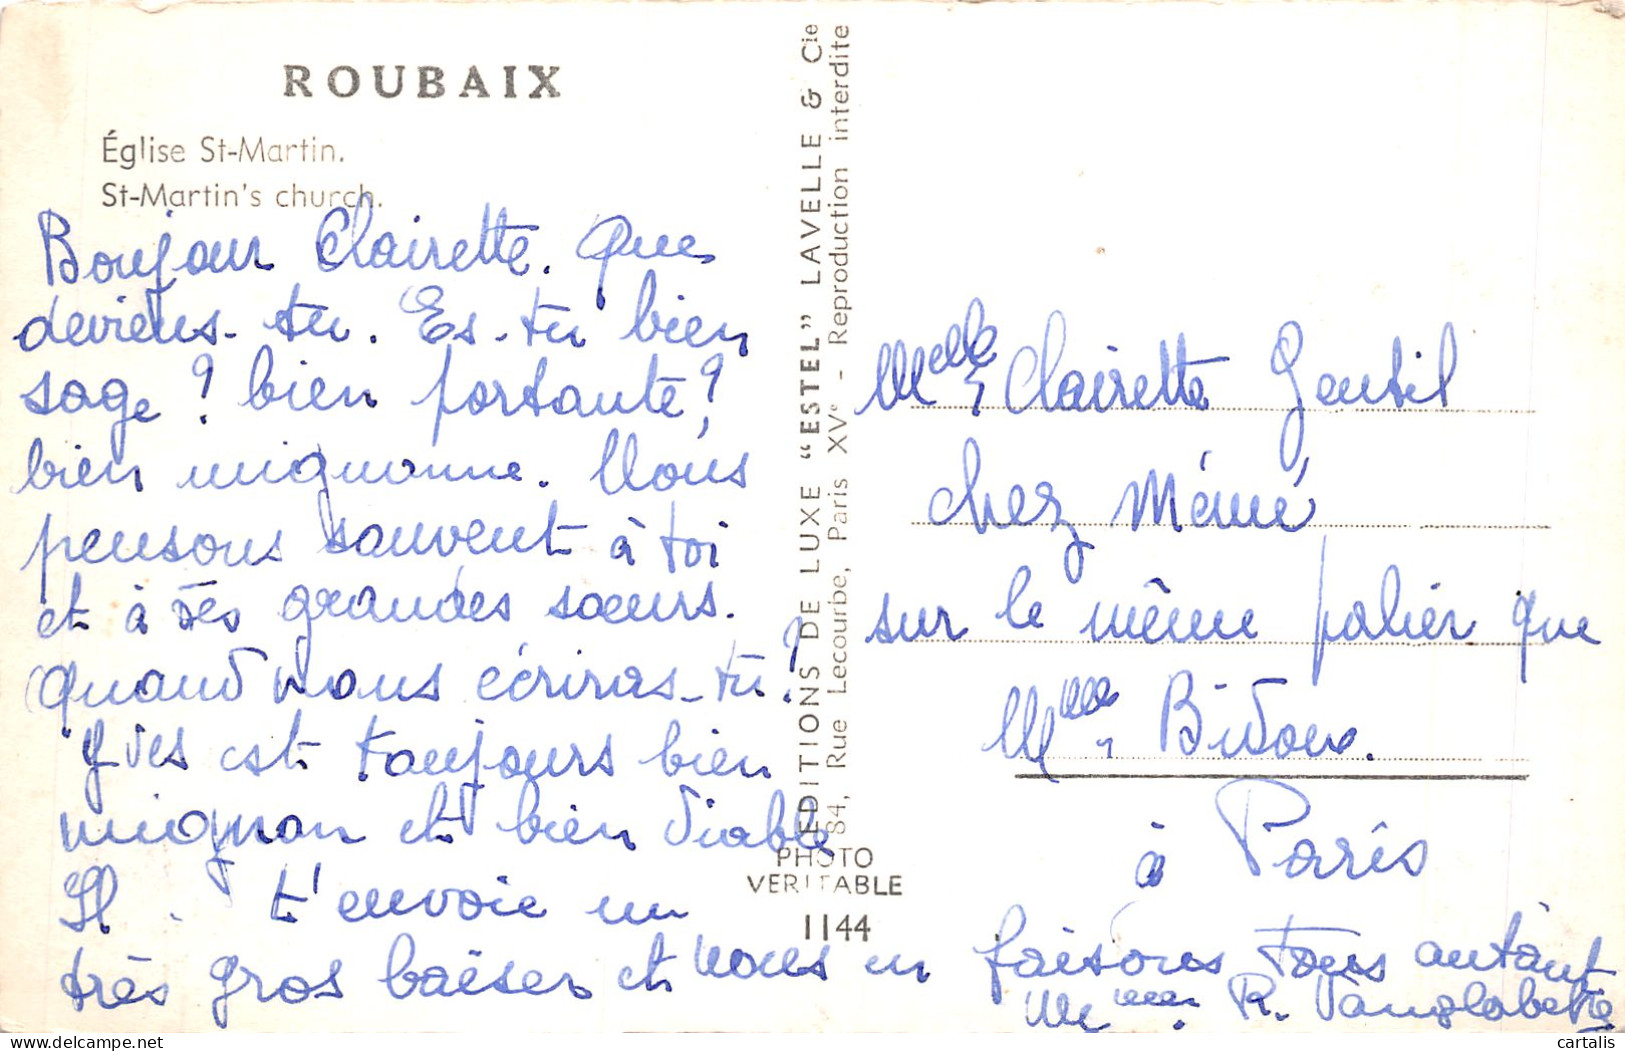 ROUBAIX
Église St-Martin.
St-Martin's church.
Bonjour Clairette. Que
deviens-tu. Es-tu bien
sage ? bien portante ?
bien mignonne. Nous
pensons souvent à toi
et à tes grandes soeurs.
Quand nous écriras-tu ?
Yves est toujours bien
mignon et bien diable
Il t'envoie un
très gros baiser et nous en faisons tous autant
EDITIONS DE LUXE "ESTEL" LAVELLE & Cie
84, Rue Lecourbe, Paris XVe - Reproduction interdite
PHOTO
VERITABLE
1144
Melle Clairette Gentil
chez Mémé
sur le même palier que
Mme Bidoux.
à Paris
Mme R.
cartalis